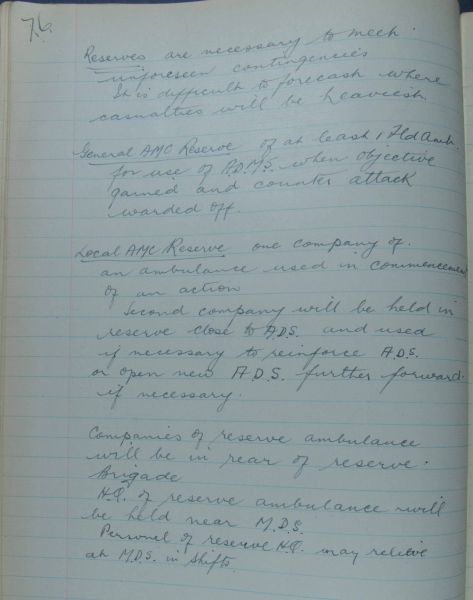 76.
Reserves are necessary to meet
unforeseen contingencies
It is difficult to forecast where
casualties will be heaviest.
General AMC Reserve of at least 1 Fld Amb.
for use of A.D.M.S. when objective
gained and counter attack
warded off.
Local AMC Reserve one company of
an ambulance used in commencement
of an action
Second company will be held in
reserve close to A.D.S. and used
if necessary to reinforce A.D.S.
or open new A.D.S. further forward
if necessary.
Companies of reserve ambulance
will be in rear of reserve
Brigade
H.Q. of reserve ambulance will
be held near M.D.S.
Personel of reserve H.Q. may relieve
at M.D.S. in shifts.